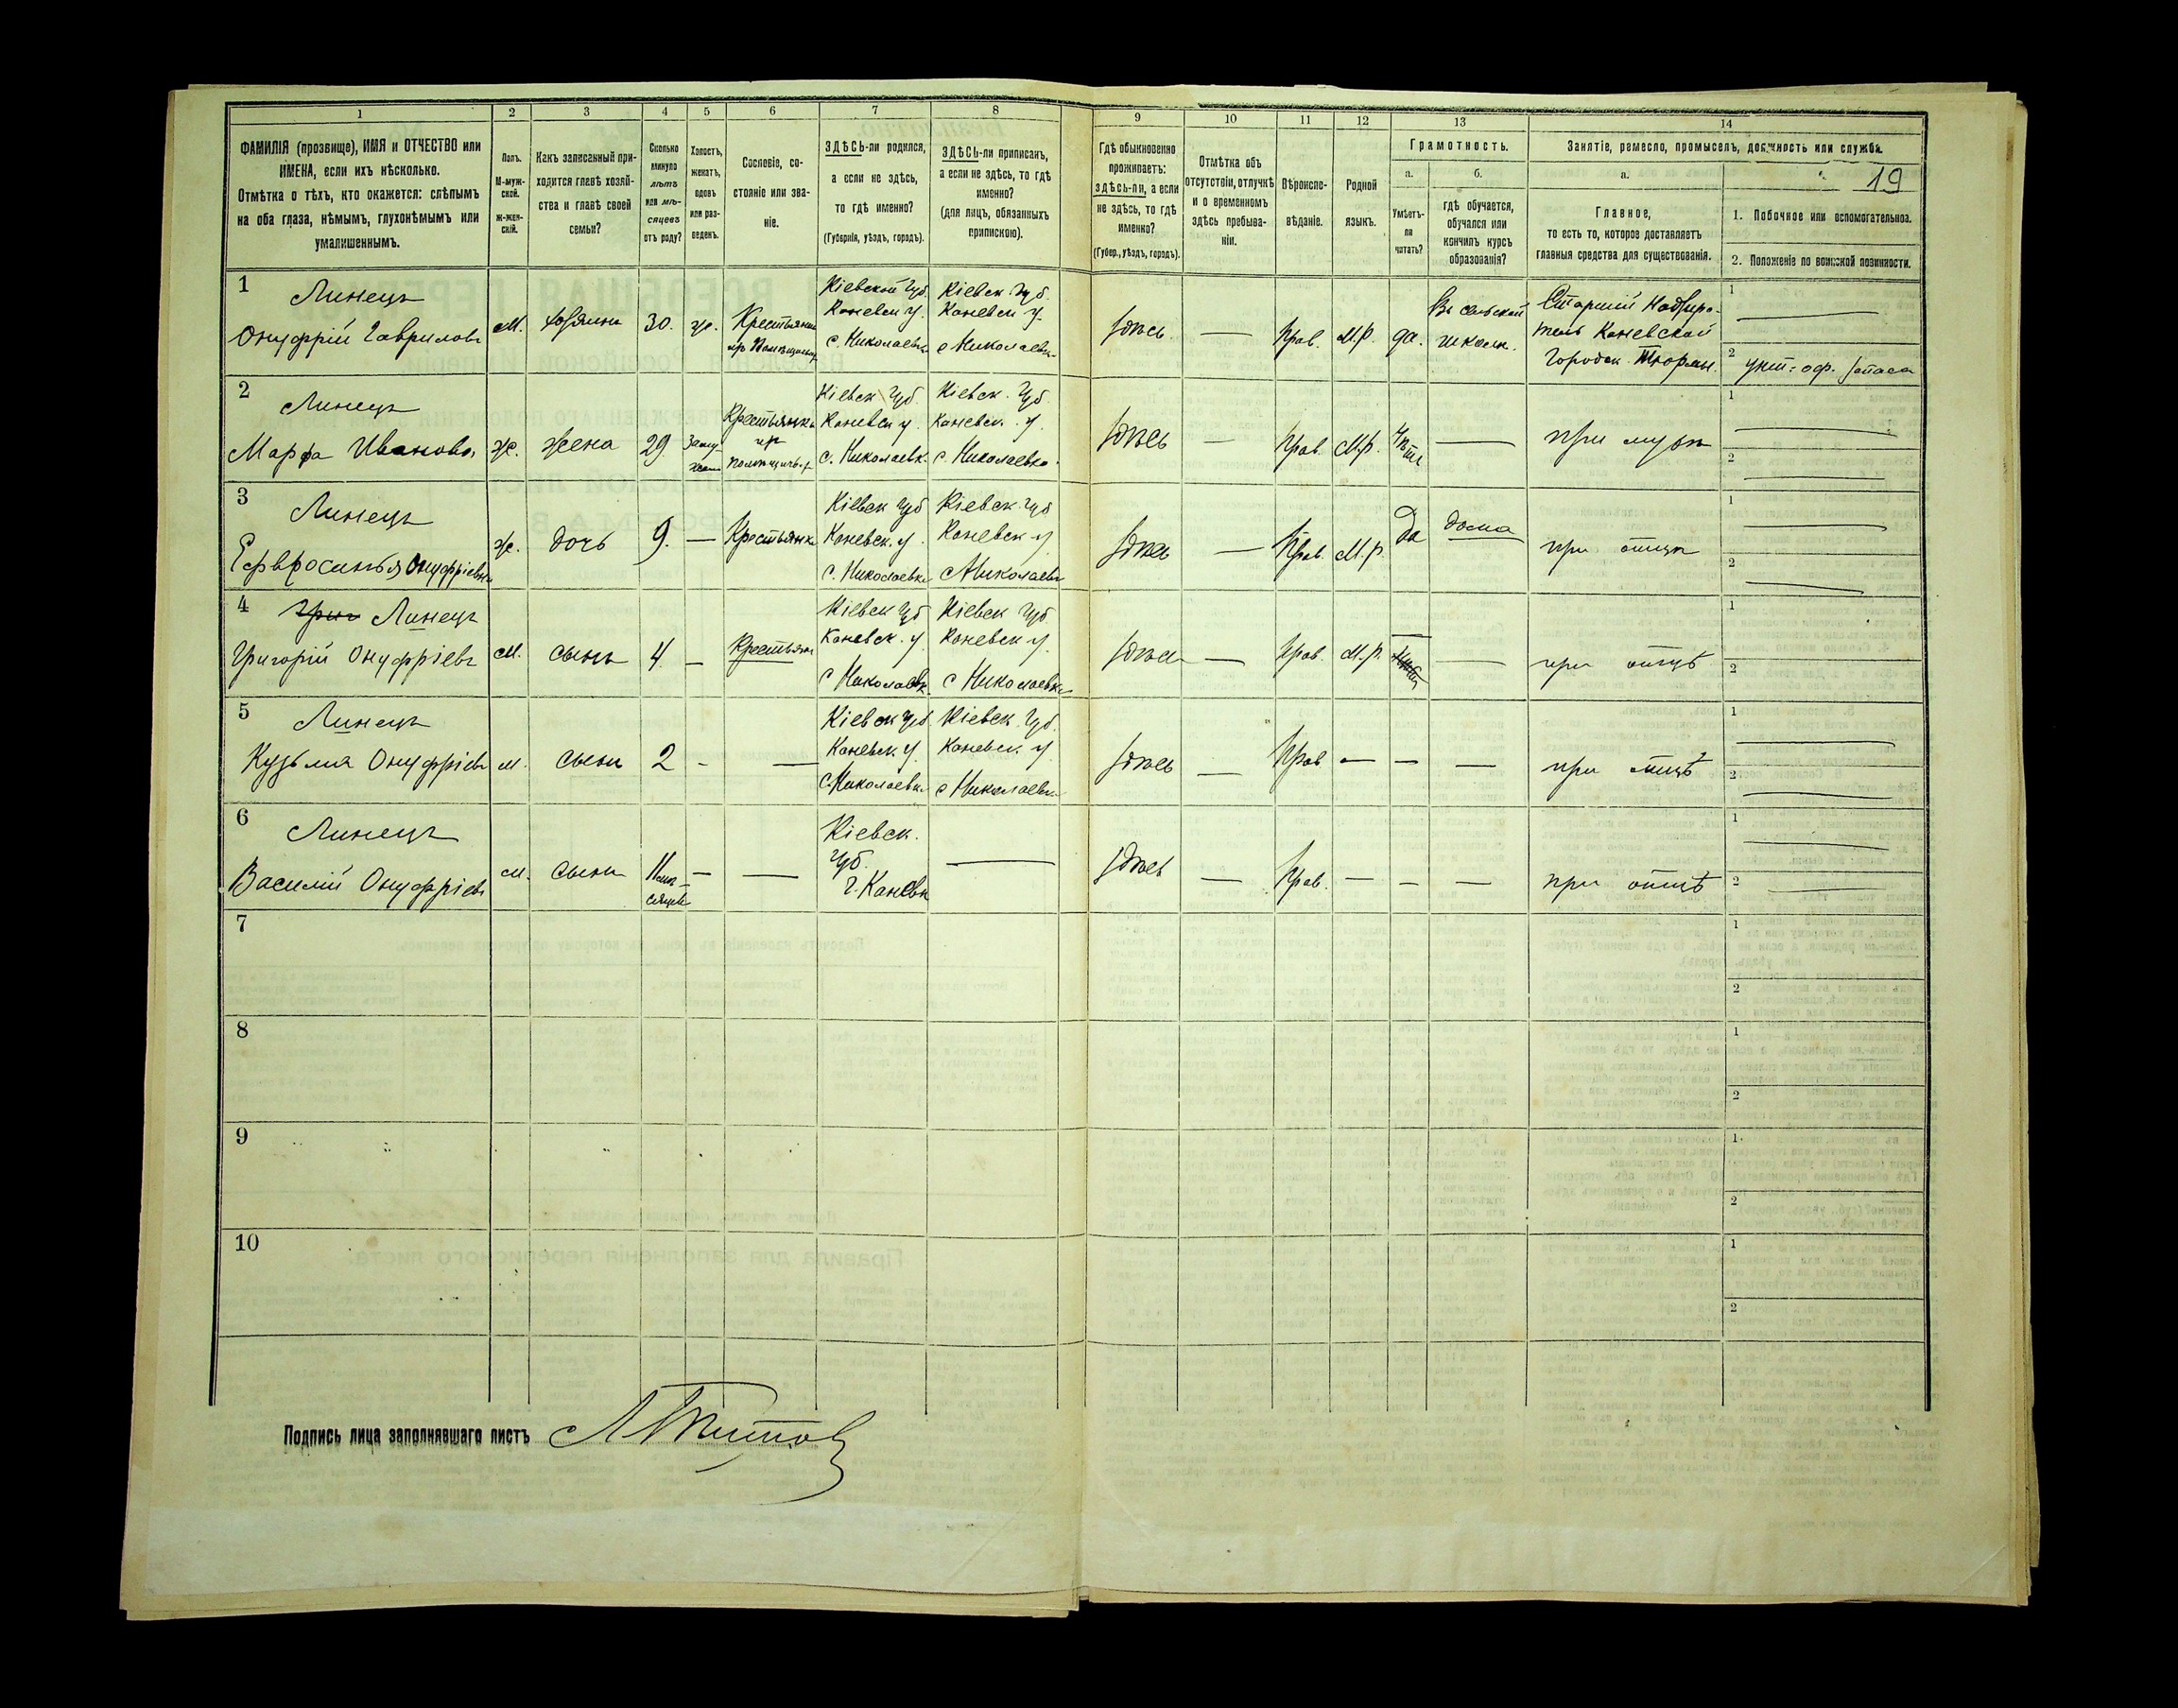 1 2 3 4 5 6 7 8 9 10 11 12 13 14
ФАМИЛІЯ (прозвище), ИМЯ и ОТЧЕСТВО или
ИМЕНА, если ихъ нѣсколько.
Отмѣтка о тѣхъ, кто окажется: слѣпымъ
на оба глаза, нѣмымъ, глухонѣмымъ или
умалишеннымъ.
Полъ.
М-муж-
ской.
Ж-жен-
скій.
Какъ записанный при-
ходится главѣ хозяй-
ства и главѣ своей
семьи?
Сколько
минуло
лѣтъ
или мѣ-
сяцевъ
отъ роду?
Холостъ,
женатъ,
вдовъ
или раз-
веденъ.
Сословіе, со-
стояніе или зва-
ніе.
ЗДѢСЬ-ли родился,
а если не здѣсь,
то гдѣ именно?
(Губернія, уѣздъ, городъ).
ЗДѢСЬ-ли приписанъ,
а если не здѣсь, то гдѣ
именно?
(для лицъ, обязанныхъ
припискою).
Гдѣ обыкновенно
проживаетъ:
здѣсь-ли, а если
не здѣсь, то гдѣ
именно?
(Губер., уѣздъ, городъ).
Отмѣтка объ
отсутствіи, отлучкѣ
и о временномъ
здѣсь пребыва-
ніи.
Вѣроиспо-
вѣданіе.
Родной
языкъ.
Грамотность.
а.
Умѣетъ-
ли
читать?
б.
гдѣ обучается,
обучался или
кончилъ курсъ
образованія?
Занятіе, ремесло, промыселъ, должность или служба.
а.
Главное,
то есть то, которое доставляетъ
главныя средства для существованія.
19
1. Побочное или вспомогательное.
2. Положеніе по воинской повинности.
1
Линецъ
Онуфрій Гавриловъ
М.
хозяинъ
30.
ж.
Крестьянинъ
Кіевской Губ.
Каневск у.
с. Николаевка
Кіевск. Губ.
Каневск у.
с Николаевка
здѣсь.
—
Прав.
М.р.
да.
Въ сельской
школѣ.
Старшій Надзира-
тель Каневской
Городск. Тюрьмы.
1
2 унт-оф. запаса
2
Линецъ
Марфа Иванова
ж.
жена
29
Заму-
жем
Крестьянка
Кіевск Губ.
Каневск у.
с. Николаевк.
Кіевск. Губ.
Каневск. у.
с. Николаевка.
здѣсь
—
Прав.
М.р.
нѣтъ
—
при мужѣ
1
2
3
Линецъ
Ефвросинья Онуфріевна
ж.
дочь
9.
—
Крестьянка
Кіевск Губ
Каневск. у.
с. Николаевка
Кіевск. Губ
Каневск у
с Николаевка
здѣсь
—
Прав.
М.р.
Да
дома
при отцѣ
1
2
4
Григ Линецъ
Григорій Онуфріевъ
м.
сынъ
4.
—
Крестьян
Кіевск Губ
Каневск. у.
с Николаевк
Кіевск Губ
Каневск у.
с Николаевка
здѣсь
—
Прав.
М.р.
—
при отцѣ
1
2
5
Линецъ
Кузьма Онуфріевъ
м.
сынъ
2
-
—
Кіевск Губ
Каневск у.
с. Николаевк
Кіевск. Губ.
Каневск. у
с Николаевк
здѣсь
—
Прав
—
—
—
при отцѣ
1
2
6
Линецъ
Василій Онуфріевъ
м.
сынъ
11 мѣ-
сяцев
—
—
Кіевск.
Губ.
г. Каневъ
—
здѣсь
—
Прав.
—
—
—
при отцѣ
1
2
7
1
2
8
1
2
9
1
2
10
1
2
Подпись лица заполнявшаго листъ